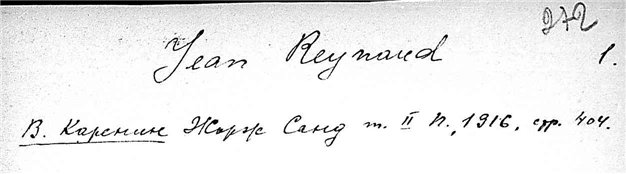 272
Jean Reynaud
1.
В. Каренин Жорж Санд т. II П., 1916, стр. 404.